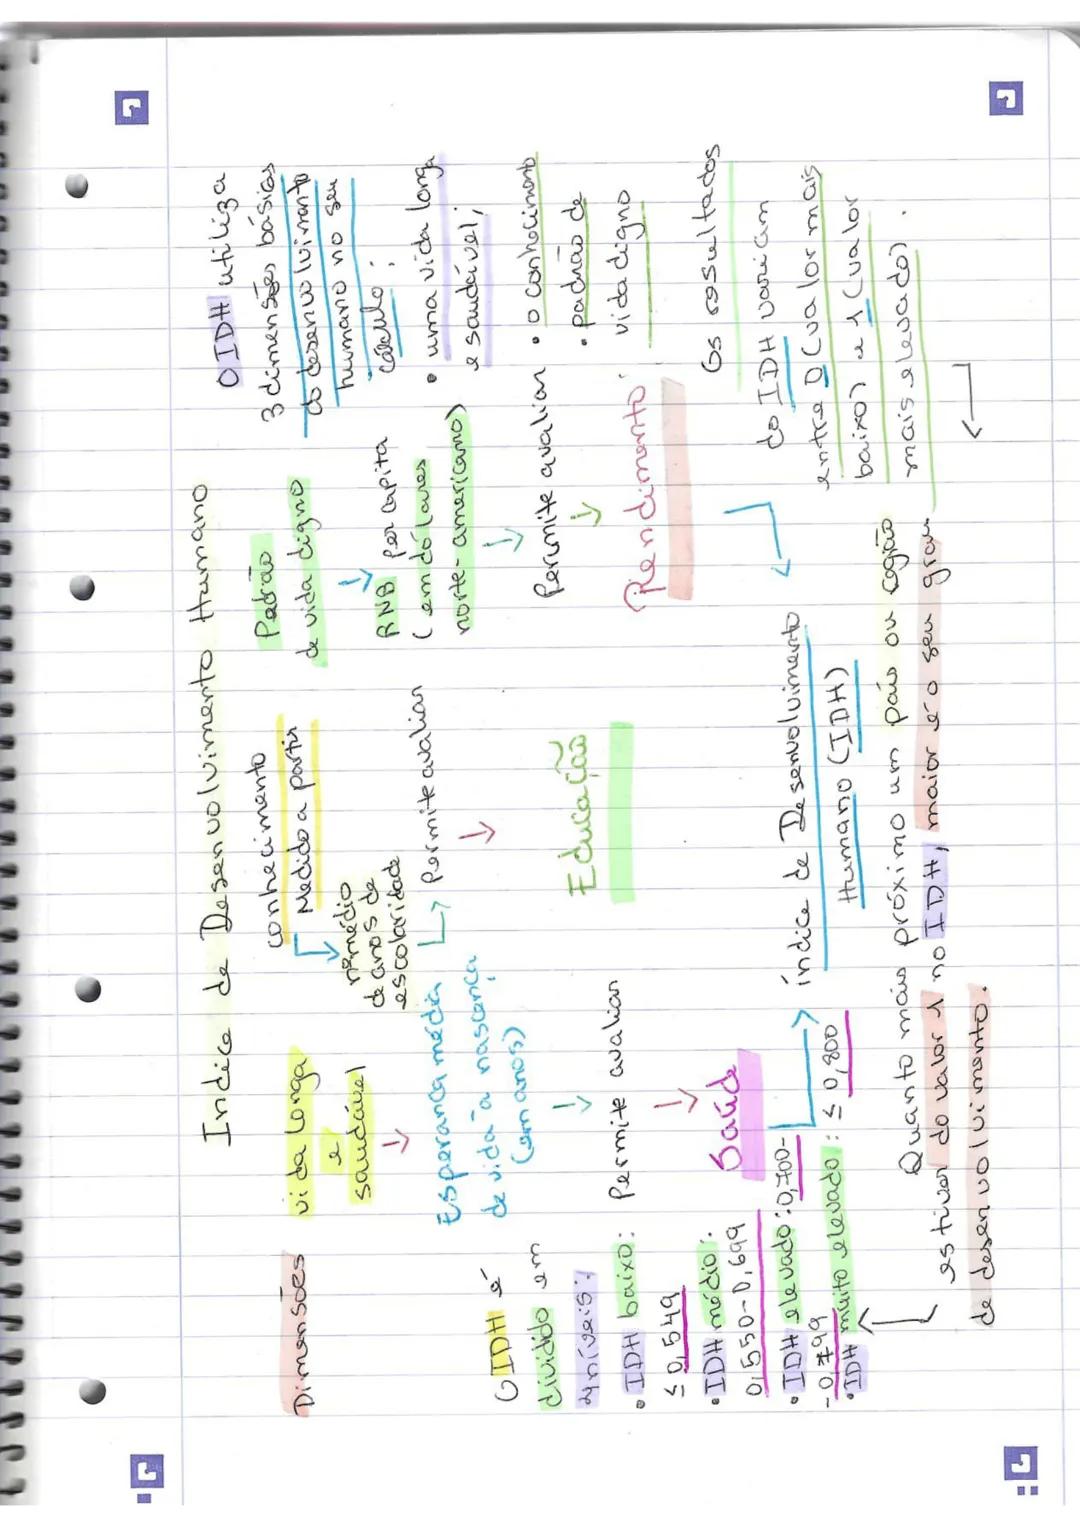 Indice de Desenvolvimento Humano
Dimensões
vida longa
e
saudável
Esperança média
de vida à nascença
(em anos)
Permite avaliar
Saúde
conhecimento
Medido a partir
nº médio
de anos de
escolaridade
Permite avaliar
Educação
Padrão
de vida digno
RNB per capita
(em dólares
norte-americano)
Permite avaliar
Rendimento
O IDH utiliza
3 dimensões básicas
do desenvolvimento
humano no seu
cálculo:
• uma vida longa
e saudável;
• o conhecimento
• padrão de
vida digno
Os resultados
do IDH variam
entre 0 (valor mais
baixo) e 1 (valor
mais elevado).
O IDH é
dividido em
4 níveis:
• IDH baixo:
≤ 0,549
• IDH médio:
0,550-0,699
• IDH elevado: 0,700-
-0,799
• IDH muito elevado: ≤ 0,800
índice de Desenvolvimento
Humano (IDH)
Quanto mais próximo um país ou região
estiver do valor 1 no IDH, maior é o seu grau
de desenvolvimento.